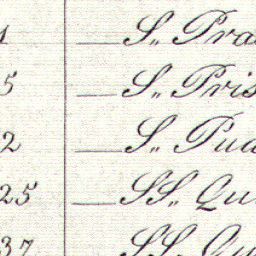 S„ Pra
5 S„ Pris
2 S„ Pud
25 SS„ Qu
37 SS„ Qu